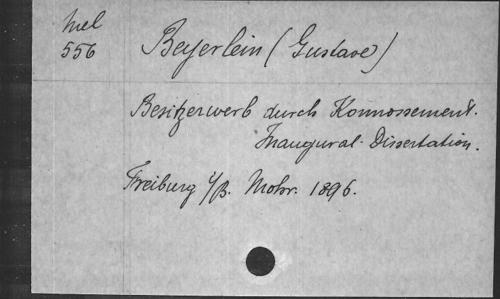 Mel
556
Beyerlein (Gustave)
Besitzerwerb durch Konnossement.
Inaugural-Dissertation.
Freiburg i/B. Mohr. 1896.